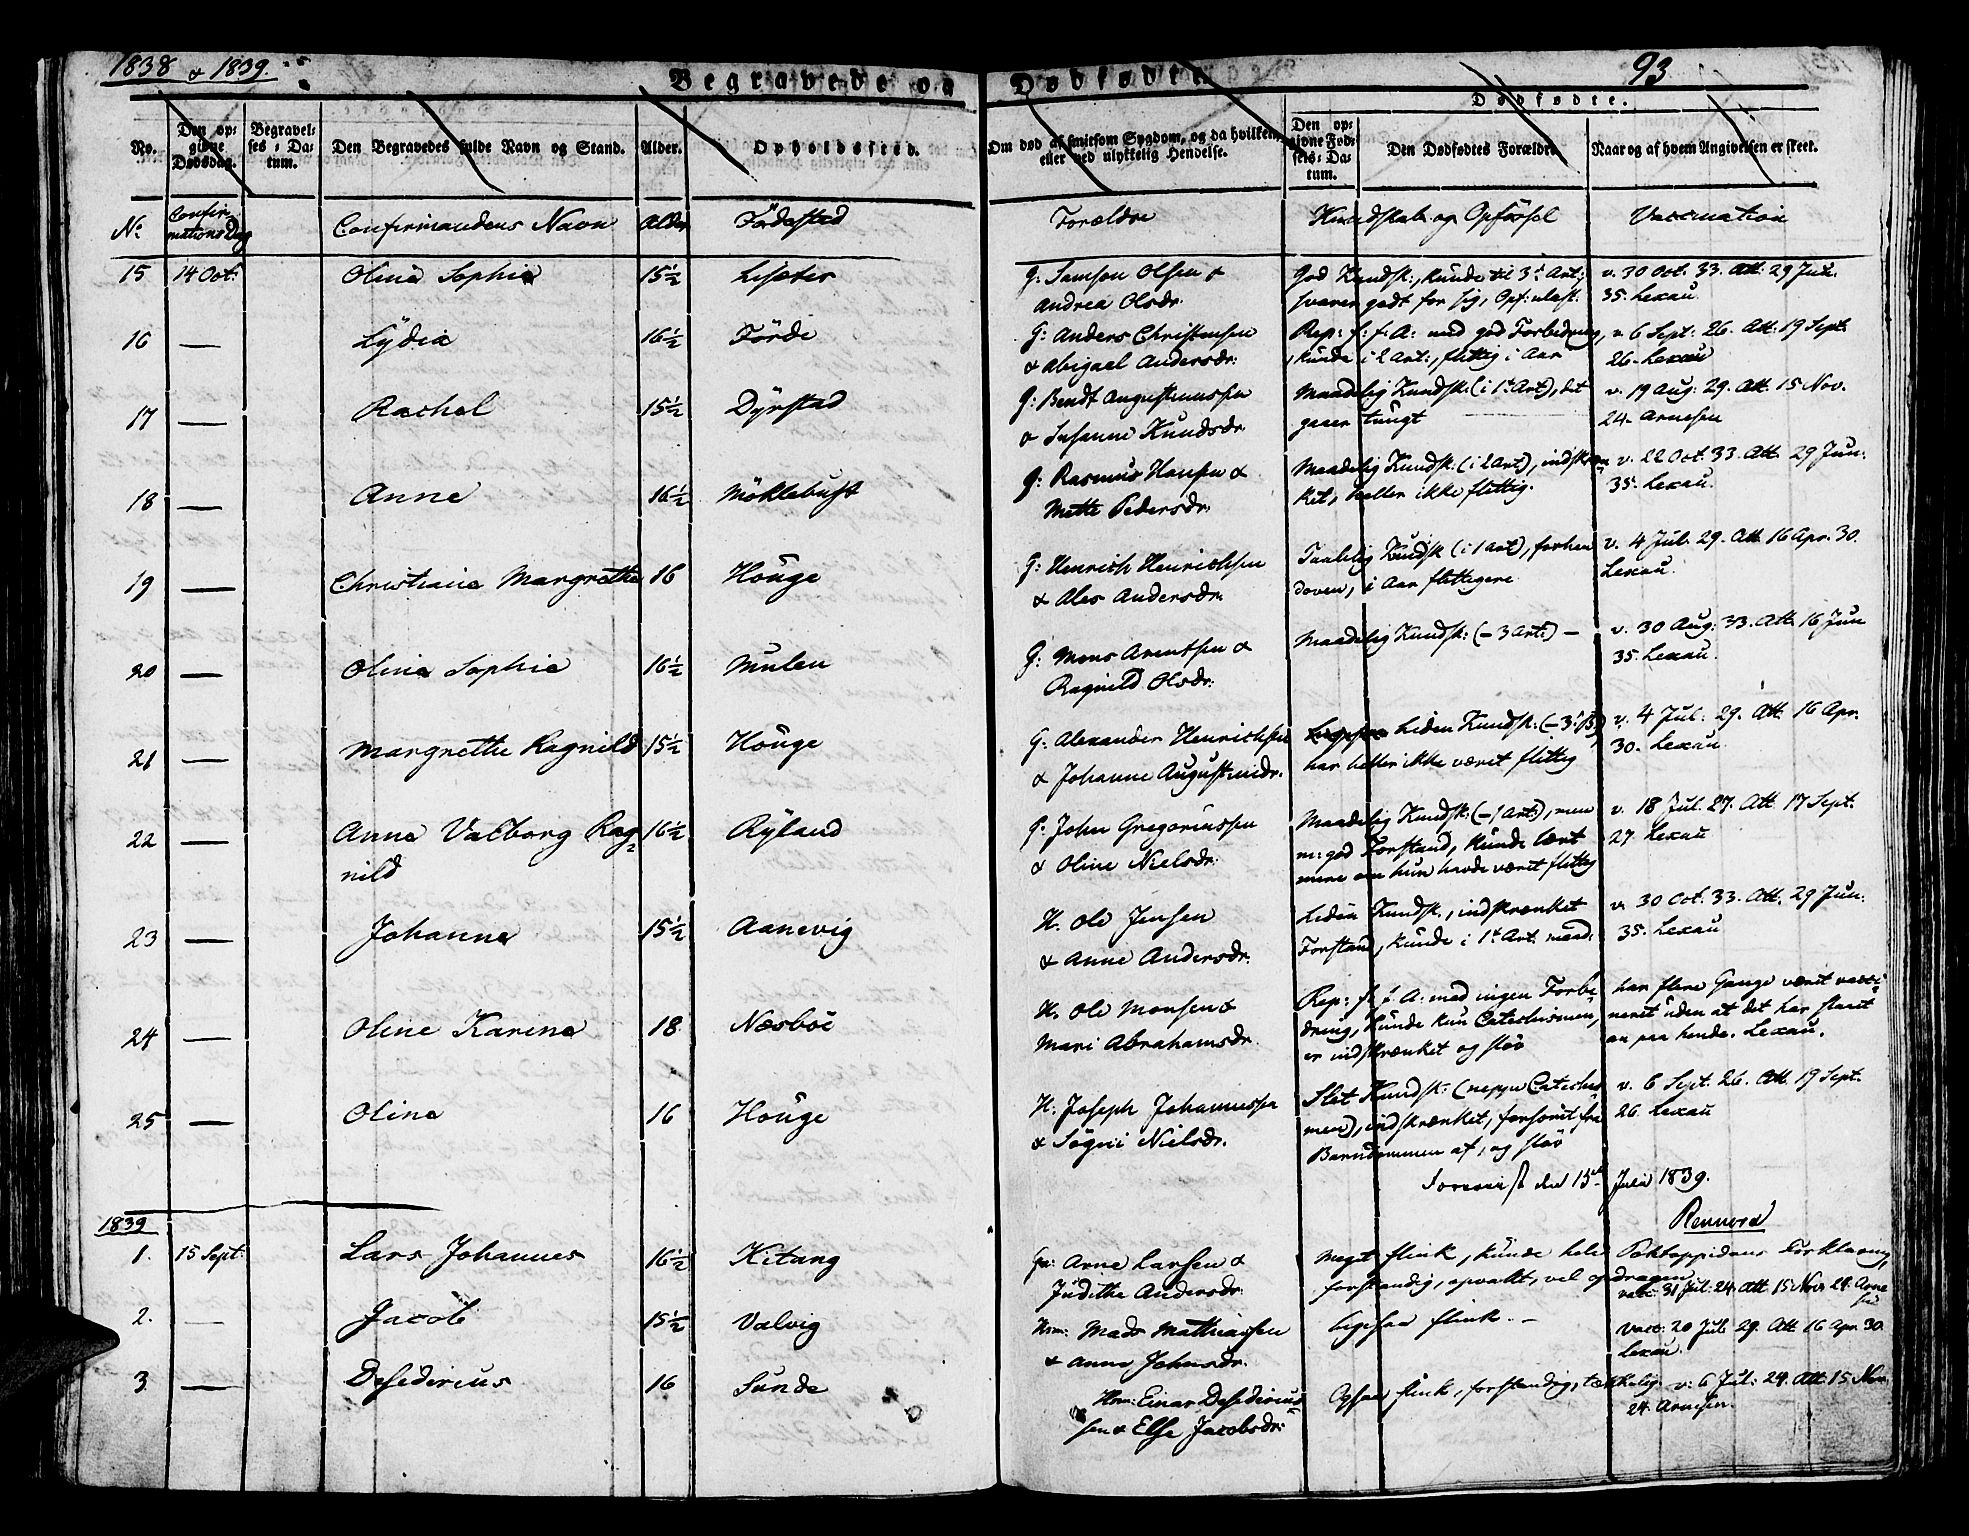 1838 & 1839
93
Begravede og Dødfødte.
Dødfødte.
No. Den opgivne Dødsdag. Begravelses-Datum. Den Begravedes fulde Navn og Stand. Alder. Opholdssted. Om død af smitsom Sygdom, og da hvilken, eller ved ulykkelig Hendelse. Den opgivne Fødsels-Datum. Den Dødfødtes Forældre. Naar og af hvem Angivelsen er skeet.
No Confirmations Dag Confirmandens Navn Alder Födested Forældre Kundskab og Opförsel Vaccination
15 14 Oct: Olina Sophia 15½ Lisæter G: Samson Olsen & God Kundsk:, kunde til 3d Art: v. 30 Oct. 33. Att: 29 Jun.
Andrea Olsdr. svarer godt for sig, Opf: ulast: 35. Lexau
16 — Lydia 16½ Förde G: Anders Christensen Rep: f: f: A: med god Forbedring, v 6 Sept: 26. Att: 19 Sept.
& Abigael Andersdr: kunde i 2 Art:, flittig i Aar 26. Lexau
17 — Rachel 15½ Dyrstad G: Bendt Augustinussen Maadelig Kundsk: (i 1t Art), det v. 19 Aug: 29. Att 15 Nov.
& Susanne Knudsdr gaaer tungt 24. Arnesen
18 — Anne 16½ Möklebust G: Rasmus Hansen & Maadelig Kundsk: (i 2 Art), indskræn v. 22 Oct. 33. Att 29 Jun:
Mette Pedersdr. ket, heller ikke flittig. 35. Lexau.
19 — Christiane Margrethe 16 Höuge G: Henrich Henrichsen Taalelig Kundsk (i 1 Art), forhen v. 4 Jul: 29. Att 16 Apr. 30.
& Ales Andersdr. doven, i Aar flittigere Lexau.
20 — Olina Sophia 16½ Mulen G: Mons Arentsen & Maadelig Kundsk: (— 3 Art:) — v. 30 Aug. 33. Att. 16 Jun
Ragnild Olsdr: 35. Lexau.
21 — Margrethe Ragnild 15½ Höuge G: Alexander Henrichsen Liden Kundsk: (— 3 P.) v. 4 Jul: 29. Att. 16 Apr.
& Johanne Augustinidr. har heller ikke været flittig 30. Lexau.
22 — Anna Valborg Rag= 16½ Ryland G: John Gregoriussen Maadelig Kundsk: (— 1 Art:), men v. 18 Jul. 27. Att. 17 Sept.
nild & Oline Nielsdr: m: god Forstand, kunde lært 27. Lexau
mere om hun havde været flittig
23 — Johanna 15½ Aanevig H. Ole Jensen Liden Kundsk:, indskrænket v. 30 Oct. 33. Att. 29 Jun:
& Anne Andersdr. Forstand, kunde i 1t Art. maad: 35. Lexau
24 — Oline Karina 18 Næsböe H. Ole Monsen & Rep: f: f. A: med ingen Forbe= har flere Gange været vacci=
Mari Abrahamsdr. dring, kunde kun Catechismen, neret uden at det har slaaet
er indskrænket og slöv an paa hende. Lexau.
25 — Olina 16 Höuge H: Joseph Johannessen Slet Kundsk: (neppe Catechis v. 6 Sept. 26. Att. 19 Sept.
& Sögni Nielsdr. men), indskrænket, forsömt fra 26 Lexau
Barndommen af, og slöv
den 15de Juli 1839.
Rennord
1839
1. 15 Sept: Lars Johannes 16½ Hitang Arne Larsen & Meget flink, kunde hele Pontoppidans Forklaring,
Judithe Andersdr. forstandig, opvakt, vel opdragen. vacc: 31 Jul: 24. Att 15 Nov 24. Arne
sen
2. — Jacob 15½ Valvig Hsm: Mads Mathiassen ligesaa flink. — Vacc: 20 Jul 29. Att 16 Apr. 30.
& Anne Johnsdr. Lexau.
3. — Desiderius 16 Sunde Hsm: Einar Desiderius= Ogsaa flink, forstandig, tækkelig v: 6 Jul: 24. Att: 15 Nov.
sen & Else Jacobsdr: 24. Arnesen.